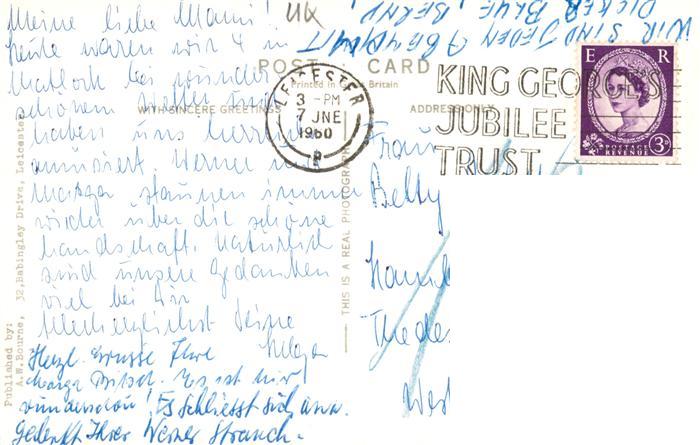 Meine liebe Mami!
heute waren wir 4 in
Matlock bei wunder
schönem Wetter und
haben uns herrlich
amüsiert Werner und
Marga staunen immer
wieder über die schöne
Landschaft. Natürlich
sind unsere Gedanken
viel bei Dir
Allerherzlichst Deine
Herzl. Grüsse Ihre
Marga Es ist hier
wunderschön! Es schliesst sich an u.
gedenkt Ihrer Werner Strauch.
WIR SIND JEDEN ABEND
DICKER BLUE, BERND
UK
POST CARD
Printed in Britain
WITH SINCERE GREETINGS
ADDRESS ONLY
LEICESTER
3 - PM
7 JNE
1960
KING GEORGE'S
JUBILEE
TRUST
E R
POSTAGE
REVENUE
3D
Frau
Betty
West
THIS IS A REAL PHOTOGRAPH
Published by:
A.W.Bourne, 32, Babingley Drive, Leicester